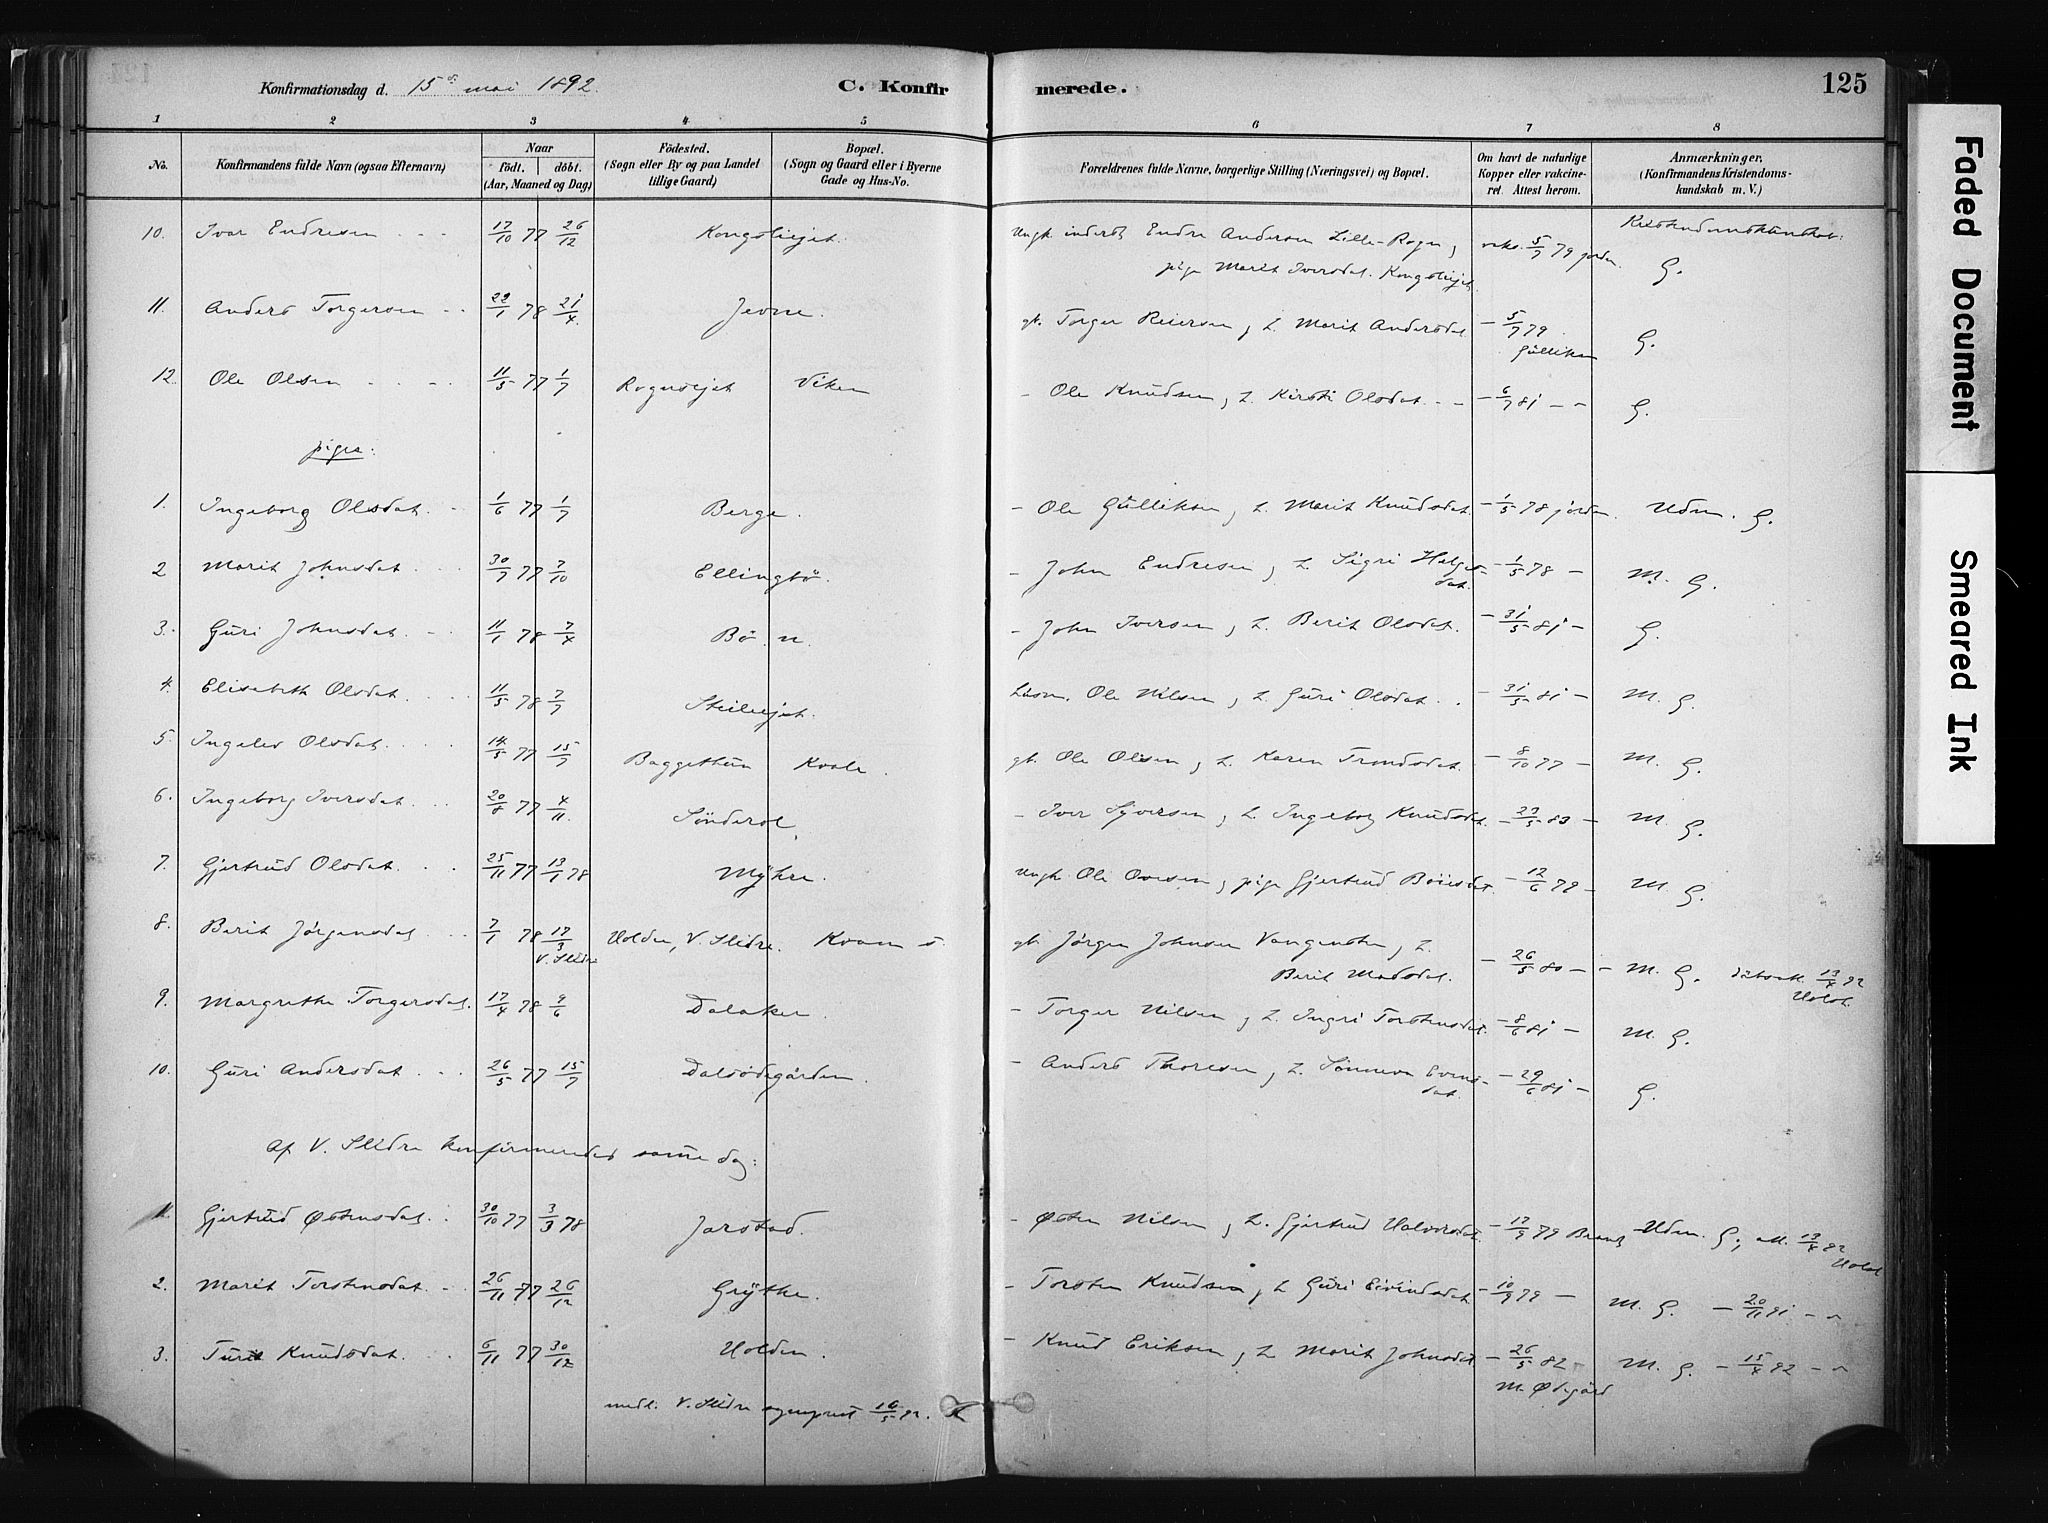 Konfirmationsdag d. 15de mai 1892. C. Konfirmerede. 125
1 2 3 4 5 6 7 8
No. Konfirmandens fulde Navn (ogsaa Efternavn) Naar født. døbt. (Aar, Maaned og Dag) Fødested. (Sogn eller By og paa Landet tillige Gaard) Bopæl. (Sogn og Gaard eller i Byerne Gade og Hus-No. Forældrenes fulde Navne, borgerlige Stilling (Næringsvei) og Bopæl. Om havt de naturlige Kopper eller vakcineret. Attest herom. Anmærkninger, (Konfirmandens Kristendomskundskab m. V.)
10. Ivar Endresen 17/10 77 26/12 Kongsliejet. Ungk. inderst Endre Andersen Lille-Rogn, vaks. 5/7 79 Kristendomskundskab:
pige Marit Iversdat. Kongsliejet. G.
11. Anders Torgersen 22/1 78 21/4 Jevne. gb. Torger Reiersen, h. Marit Andersdat. - 5/7 79 Gulliksen G.
12. Ole Olsen 11/5 77 1/7 Rognsejet Viken - Ole Knudsen, h. Kirsti Olsdat. - 6/7 81 - - G.
piger:
1. Ingeborg Olsdat. 1/6 77 1/7 Berge. - Ole Gulliksen, h. Marit Knudsdat. - 1/5 78 Udm. G.
2 Marit Johnsdat. 30/7 77 7/10 Ellingbø. - John Endresen, h. Sigri Helgesdat. - 1/5 78 - M. G.
3. Guri Johnsdat. 11/1 78 7/4 Bø n. - John Iversen, h. Berit Olsdat. - 31/5 81 - G.
4. Elisabeth Olsdat. 11/5 78 7/7 Steileejet. Husm. Ole Nilsen, h. Guri Olsdat. - 31/5 81 - M. G.
5. Ingelev Olsdat. 14/5 77 15/7 Baggethun Kvale. gb. Ole Olsen, h. Karen Trondsdat. - 8/10 77 - M. G.
6. Ingeborg Iversdat. 20/8 77 4/11 Sønderol. - Iver Syversen, h. Ingeborg Knudsdat. - 23/5 83 - M. G.
7. Gjertrud Olsdat. 25/11 77 13/1 78 Myhre. Ungk. Ole Ovesen, pige Gjertrud Boiesdat. - 12/6 79 - M. G.
8. Berit Jørgensdat. 7/1 78 17/3 V. Slidre Holden, V. Slidre. Kvam s. gb. Jørgen Johnsen Vangensten, h.
Berit Madsdat. - 26/5 80 - - M. G. dåbsatt. 13/4 92 Holst.
9. Margrethe Torgersdat. 17/4 78 9/6 Dalaker. - Torger Nilsen, h. Ingri Torstensdat. - 8/6 81 - M. G.
10. Guri Andersdat. 26/5 77 15/7 Dalsødegården. - Anders Thoresen, h. Sønneva Evensdat. - 29/6 81 - G.
Af V. Slidre konfirmeredes samme dag:
1. Gjertrud Østensdat. 30/10 77 3/3 78 Jarstad. - Østen Nilsen, h. Gjertrud Halvorsdat. - 17/9 79 Brandt Udm. G, att. 13/4 92 Holst
2. Marit Torstensdat. 26/11 77 26/12 Grythe. - Torsten Knudsen, h. Guri Eivindsdat. - 10/9 79 - M. G. - 20/11 91 - -
3. Turid Knudsdat. 6/11 77 30/12 Holden. - Knud Eriksen, h. Marit Johnsdat. - 26/5 82 - M. Ødegård M. G. - 15/4 92 - -
medt. V. Slidre sogneprest 16/5 92.
Faded Document
Smeared Ink